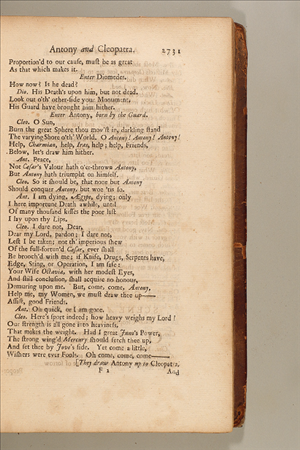 Antony and Cleopatra. 2731
Proportion'd to our cause, must be as great
As that which makes it.
Enter Diomedes.
How now? Is he dead?
Dio. His Death's upon him, but not dead.
Look out o'th' other-side your Monument,
His Guard have brought him hither.
Enter Antony, born by the Guard.
Cleo. O Sun,
Burn the great Sphere thou mov'st in, darkling stand
The varying Shore o'th' World. O Antony! Antony! Antony!
Help, Charmian, help, Iras, help; help, Friends,
Below, let's draw him hither.
Ant. Peace,
Not Cæsar's Valour hath o'er-thrown Antony,
But Antony hath triumpht on himself.
Cleo. So it should be, that none but Antony
Should conquer Antony, but woe 'tis so.
Ant. I am dying, Ægypt, dying; only
I here importune Death awhile, until
Of many thousand kisses the poor last
I lay upon thy Lips.
Cleo. I dare not, Dear,
Dear my Lord, pardon; I dare not,
Lest I be taken; not th' imperious shew
Of the full-fortun'd Cæsar, ever shall
Be brooch'd with me; if Knife, Drugs, Serpents have,
Edge, Sting, or Operation, I am safe:
Your Wife Octavia, with her modest Eyes,
And still conclusion, shall acquire no honour,
Demuring upon me. But, come, come, Antony,
Help me, my Women, we must draw thee up——
Assist, good Friends.
Ant. Oh quick, or I am gone.
Cleo. Here's sport indeed; how heavy weighs my Lord!
Our strength is all gone into heaviness,
That makes the weight. Had I great Juno's Power,
The strong wing'd Mercury should fetch thee up,
And set thee by Jove's side. Yet come a little,
Wishers were ever Fools. Oh come, come, come——
[They draw Antony up to Cleopatra.
F 2
And